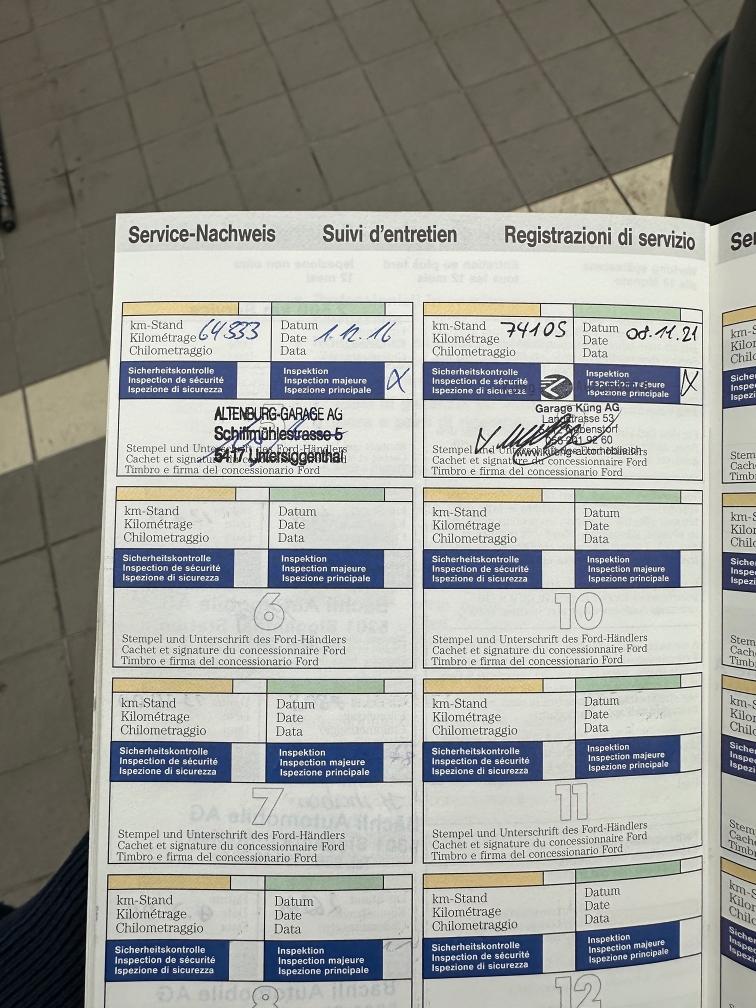 Service-Nachweis Suivi d'entretien Registrazioni di servizio
km-Stand 64333 Datum
Kilométrage Date 1.12.16
Chilometraggio Data
Sicherheitskontrolle Inspektion
Inspection de sécurité Inspection majeure
Ispezione di sicurezza Ispezione principale
ALTENBURG-GARAGE AG
Schiffmühlestrasse 5
5417 Untersiggenthal
Stempel und Unterschrift des Ford-Händlers
Cachet et signature du concessionnaire Ford
Timbro e firma del concessionario Ford
km-Stand 74105 Datum
Kilométrage Date 08.11.21
Chilometraggio Data
Sicherheitskontrolle Inspektion
Inspection de sécurité Inspection majeure
Ispezione di sicurezza Ispezione principale
Garage Küng AG
Landstrasse 53
Stempel und
Cachet et signature du concessionnaire Ford
Timbro e firma del concessionario Ford
km-Stand Datum
Kilométrage Date
Chilometraggio Data
Sicherheitskontrolle Inspektion
Inspection de sécurité Inspection majeure
Ispezione di sicurezza Ispezione principale
6
Stempel und Unterschrift des Ford-Händlers
Cachet et signature du concessionnaire Ford
Timbro e firma del concessionario Ford
km-Stand Datum
Kilométrage Date
Chilometraggio Data
Sicherheitskontrolle Inspektion
Inspection de sécurité Inspection majeure
Ispezione di sicurezza Ispezione principale
10
Stempel und Unterschrift des Ford-Händlers
Cachet et signature du concessionnaire Ford
Timbro e firma del concessionario Ford
km-Stand Datum
Kilométrage Date
Chilometraggio Data
Sicherheitskontrolle Inspektion
Inspection de sécurité Inspection majeure
Ispezione di sicurezza Ispezione principale
7
Stempel und Unterschrift des Ford-Händlers
Cachet et signature du concessionnaire Ford
Timbro e firma del concessionario Ford
km-Stand Datum
Kilométrage Date
Chilometraggio Data
Sicherheitskontrolle Inspektion
Inspection de sécurité Inspection majeure
Ispezione di sicurezza Ispezione principale
11
Stempel und Unterschrift des Ford-Händlers
Cachet et signature du concessionnaire Ford
Timbro e firma del concessionario Ford
km-Stand Datum
Kilométrage Date
Chilometraggio Data
Sicherheitskontrolle Inspektion
Inspection de sécurité Inspection majeure
Ispezione di sicurezza Ispezione principale
8
km-Stand Datum
Kilométrage Date
Chilometraggio Data
Sicherheitskontrolle Inspektion
Inspection de sécurité Inspection majeure
Ispezione di sicurezza Ispezione principale
12